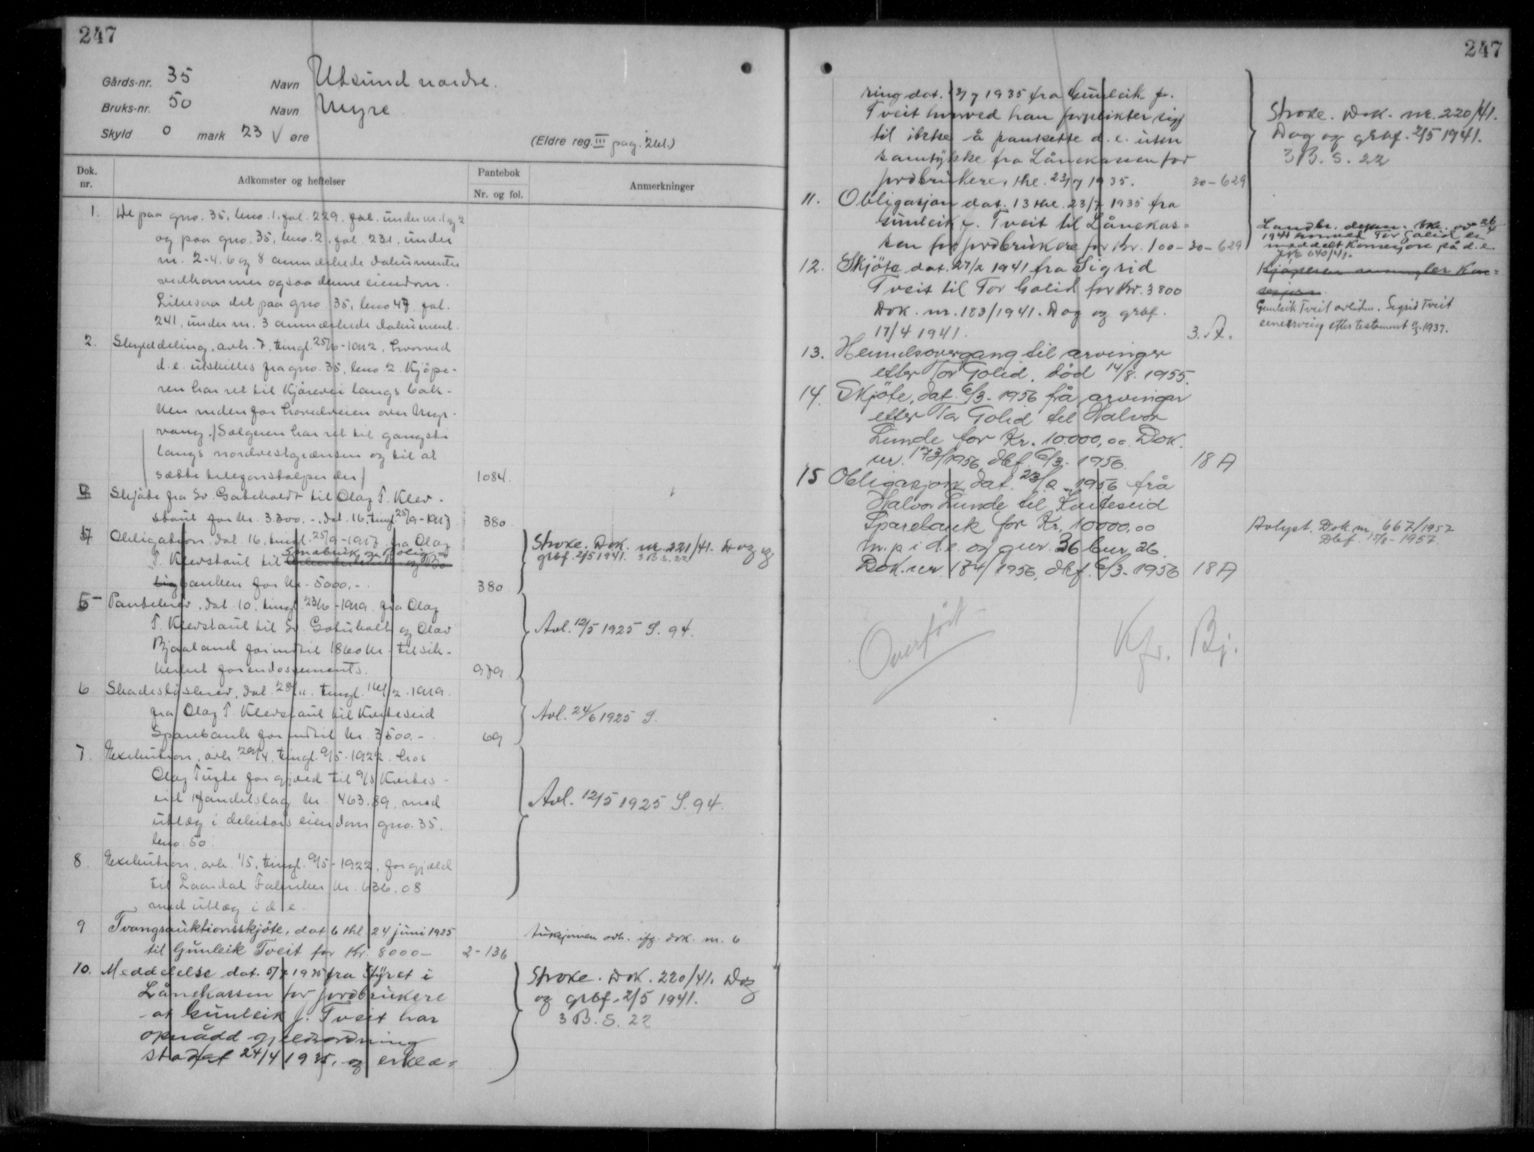 247
Gårds-nr. 35 Navn Utsund nordre.
Bruks-nr. 50 Navn Myre
Skyld 0 mark 23 øre
(Eldre reg. III pag. 261.)
Dok. nr.
Adkomster og heftelser
Pantebok
Nr. og fol.
Anmerkninger
1. De paa gno. 35, bno. 1, fol. 229, fol. under nr. 1 og 2
og paa gno. 35, bno. 2, fol. 231, under
nr. 2-4, 6 og 8 anmærkede dokumenter
vedkommer ogsaa denne eiendom.
Likesaa det paa gno 35, bno 47 fol.
241, under nr. 3 anmærkede dokument.
2. Skylddeling, avh. 7, tingl. 25/6-1912, hvorved
d.e. utskilles fra gno. 35, bno 2. Kjøpe-
ren har ret til kjørevei langs bak-
ken nedenfor hovedveien over Myr-
vang. Sælgeren har ret til gangsti
langs nordvestgrænsen og til at
sætte telefonstolper der 1084.
Skjøte fra Sv. Gotuholt til Olag T. Klev-
staul for kr. 3300.-, dat. 16, tingl. 25/9-1917 380
Obligation, dat. 16. tingl. 25/9-1917 fra Olag
T. Klevstaul til Småbruk og Bolig
banken for kr. 5000.- 380
Stroke. Dok. nr. 221/41. Dag og
grbf. 2/5 1941. 3 B. S. 22
5 Pantebrev, dat. 10. tingl. 23/6-1919, fra Olag
T. Klevstaul til Sv. Gotuholt og Olav
Bjaaland for indtil 1860 kr. til sik-
kerhet for endossements. 979
Avl. 12/5 1925 S. 94.
6 Skadesløsbrev, dat. 28/11. tingl. 14/12 1919
fra Olag T. Klevstaul til Kviteseid
Sparebank for indtil kr. 3500.- 69
Avl. 24/6 1925 S.
7. Exekution, avh. 29/4, tingl. 9/5-1922 hos
Olag Tugte for gjæld til a/s Kvites-
eid Handelslag kr. 463,89, med
utlæg i debitors eiendom gno. 35,
bno. 50.
Avl. 12/5 1925 S. 94.
8. Exekution, avh. 1/5, tingl. 9/5-1922, for gjæld
til Laardal Fabrikker kr. 636,08
med utlæg i d.e.
9 Tvangsauktionsskjøte, dat 6 thl. 24 juni 1925
til Gunleik Tveit for kr. 8000- 2-136
10. Meddelelse dat. 5/7 1935 fra Styret i
Lånekassen for jordbrukere
at Gunleik J. Tveit har
opnådd gjeldsordning
stadf. 24/4 1935, og erklæ-
Stroke. Dok. 220/41. Dag
og grbf. 2/5 1941.
3 B. S. 22
247
ring dat. 13/7 1935 fra Gunleik J.
Tveit hvorved han forplikter sig
til ikke å pantsette d.e. uten
samtykke fra Lånekassen for
jordbrukere, thl. 23/7 1935. 30-629
Stroke. Dok. nr. 220/41.
Dag og grbf. 2/5 1941.
3 B. S. 22
11. Obligasjon dat. 13 thl. 23/7 1935 fra
Gunleik J. Tveit til Lånekas-
sen for jordbrukere for Kr. 100- 30-629
12. Skjøte dat. 27/2 1941 fra Sigrid
Tveit til Tor Golid for kr. 3800
Dok. nr. 183/1941. Dag og grbf.
17/4 1941. 3. A.
1941 Tor Golid er
meddelt konsesjon på d.e.
640/41.
Gunleik Tveit avliden. Sigrid Tveit
enearving efter testament 1937.
13. Hemmelsovergang til arvinger
efter Tor Golid, død 14/8. 1955.
14. Skjøte, dat. 6/3. 1956 frå arvinger
etter Tor Golid til Halvor
Lunde for Kr. 10000,00. Dok.
nr. 173/1956, dbf. 6/3. 1956. 18 A
15 Obligasjon dat. 23/2 1956 frå
Halvor Lunde til Kviteseid
Sparebank for Kr. 10000,00
m.p. i d.e. og gnr. 36 bnr. 26.
Dok. nr. 174/1956, dbf. 6/3-1956 18 A
Avlyst. Dok nr. 667/1957
Dbf. 1957
Overført
Kfr. Bj.